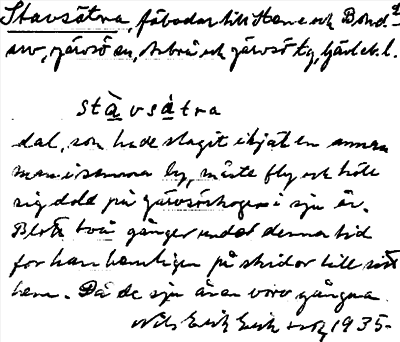 Stavsätra, fäbodar till Stene och Bond-
arv, Järvsö sn, Arbrå och Järvsö tg, Gävleb. l.
stàvsátra
dal, som hade slagit ihjäl en annan
man i samma by, måste fly och höll
sig dold på Järvsöskogen i sju år.
Blott två gånger under denna tid
for han hemligen på skidor till sitt
hem. Då de sju åren voro gångna
Nils Erik Eriksson 1935-